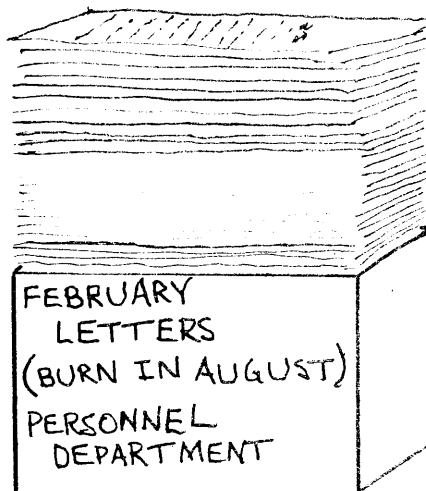 FEBRUARY
LETTERS
(BURN IN AUGUST)
PERSONNEL
DEPARTMENT